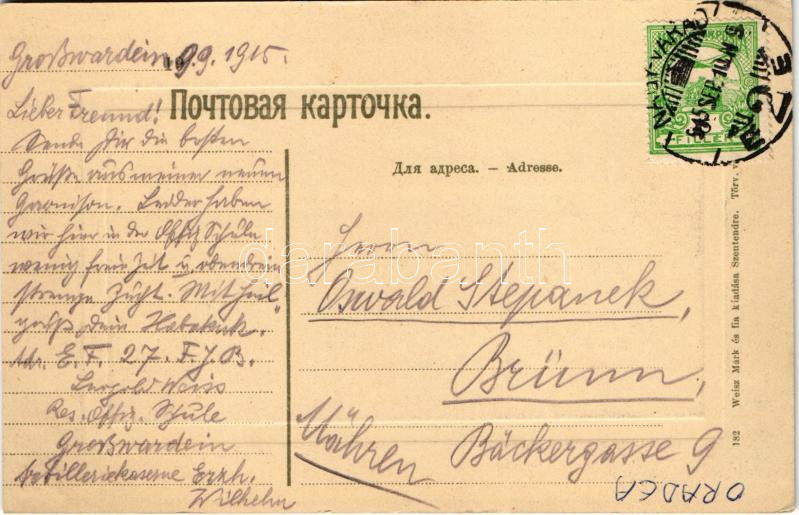 Großwardein 9/9. 1915.
Lieber Freund!
Sende Dir die besten
Grüße aus meiner neuen
Garnison. Leider haben
wir hier in der Offiz. Schule
wenig freie Zeit u. obendrein
strenge Zucht. Mit "Heil"
grüß Dein Habakuk.
E. F. 27. F. J. B.
Leopold Weiss
Res. Offiz. Schule
Großwardein
Artilleriekaserne Erzh.
Wilhelm
Почтовая карточка.
Для адреса. – Adresse.
Herrn
Oswald Stepanek,
Brünn,
Mähren Bäckergasse 9
ORADEA
182 Weisz Márk és fia kiadása Szentendre. Törv. v
NAGYVÁRAD
FILLÉR
darabanth